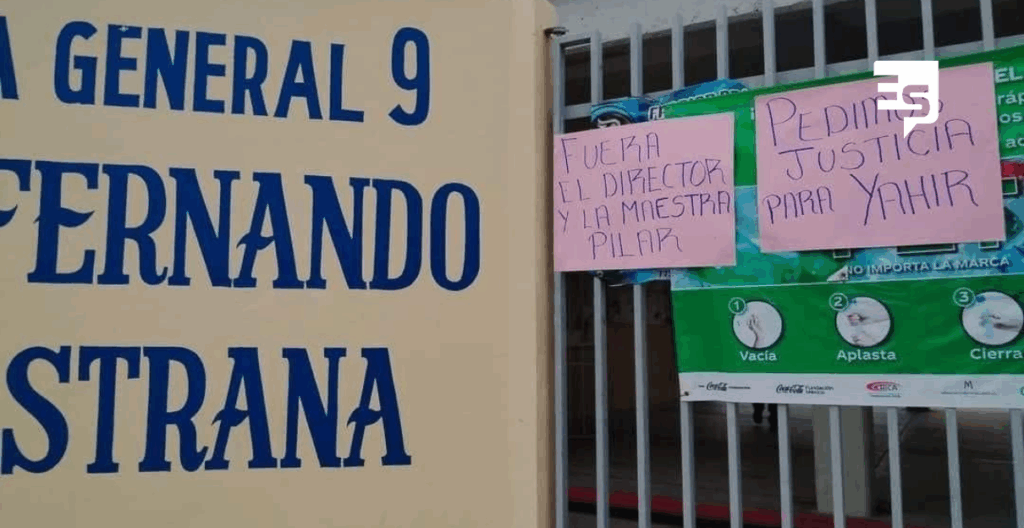 A GENERAL 9
FERNANDO
STRANA
FUERA
EL DIRECTOR
Y LA MAESTRA
PILAR
PEDIMOS
JUSTICIA
PARA YAHIR
ES
EL
NO IMPORTA LA MARCA
1
2
3
Vacía
Aplasta
Cierra
Coca-Cola
Coca-Cola Fundación